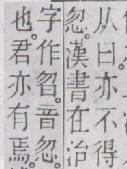 从曰。亦不得
忽。漢書在治
字作曶。音忽。
也。君亦有焉。